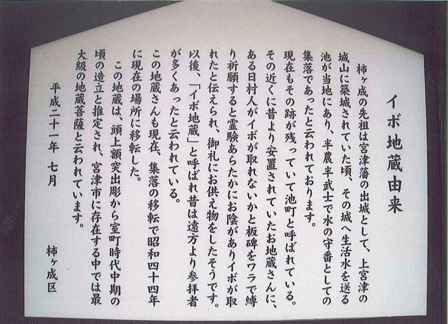 イボ地蔵由来
柿ヶ成の先祖は宮津藩の出城として、上宮津の
城山に築城されていた頃、その城へ生活水を送る
池が当地にあり、半農半武士で水の守番としての
集落であったと云われております。
現在もその跡が残っていて池町と呼ばれている。
その近くに昔より安置されていたお地蔵さんに、
ある日村人がイボが取れないかと板碑をワラで縛
り祈願すると霊験あらたかにお陰がありイボが取
れたと伝えられ、御礼にお供え物をしたそうです。
以後、「イボ地蔵」と呼ばれ昔は遠方より参拝者
が多くあったと云われている。
この地蔵さんも現在、集落の移転で昭和四十四年
に現在の場所に移転した。
この地蔵は、頭上額突出彫から室町時代中期の
頃の造立と推定され、宮津市に存在する中では最
大級の地蔵菩薩と云われています。
平成二十一年 七月
柿ヶ成区